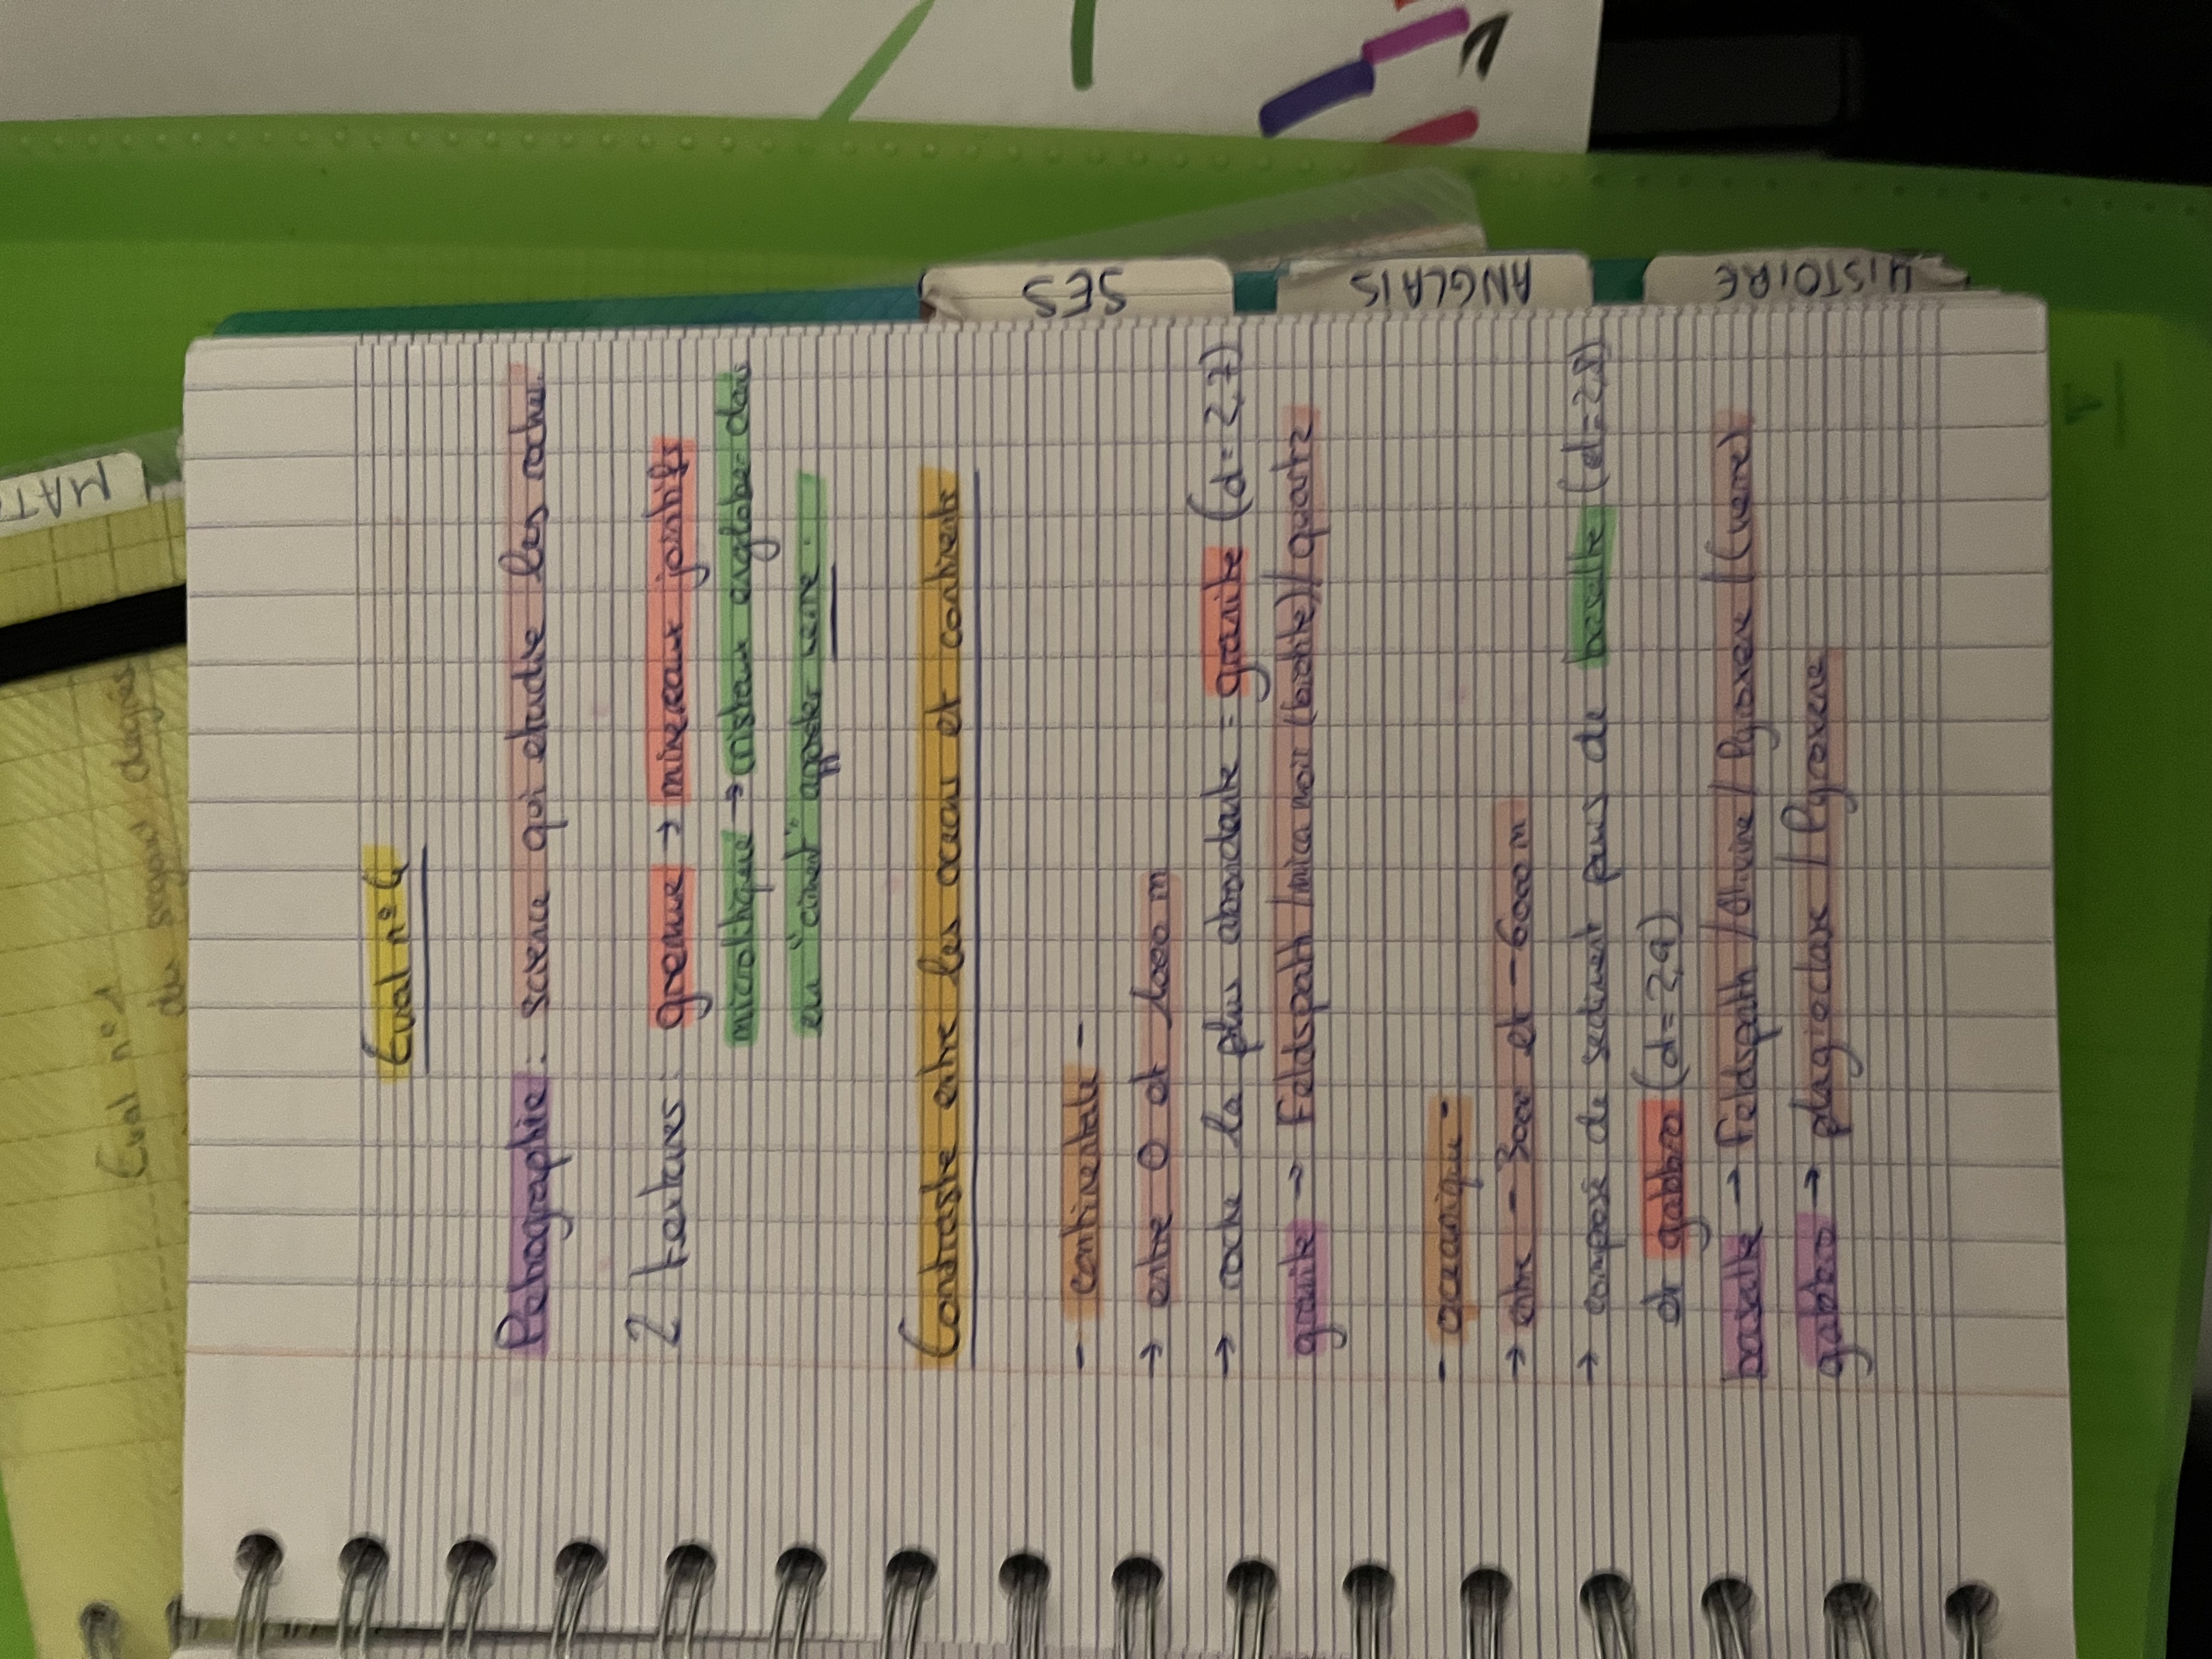 Eval n°4
Petrographie : science qui etudie les roche.
2 textures : grenue → mineraux jointifs
microlithique → cristaux englobe dans
en "ciment" appeler verre.
Contraste entre les oceans et continents
- continentale -
→ entre 0 et 1000 m
→ roche la plus abondante = granite (d=2,7)
granite → Feldspath / mica noir (biotite) / quartz
- oceanique -
→ entre -3000 et -6000 m
→ composé de sediment puis de basalte (d=2,8)
et gabbro (d=2,9)
basalte → Feldspath / Olivine / Pyroxene / (verre)
gabbro → plagioclase / Pyroxene
SES
ANGLAIS
HISTOIRE
MAT
Eval n°1
du